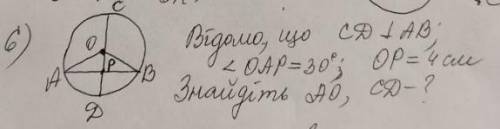 6)
C
O
A P B
D
Відомо, що CD ⊥ AB;
∠OAP=30°; OP=4см
Знайдіть AO, CD-?